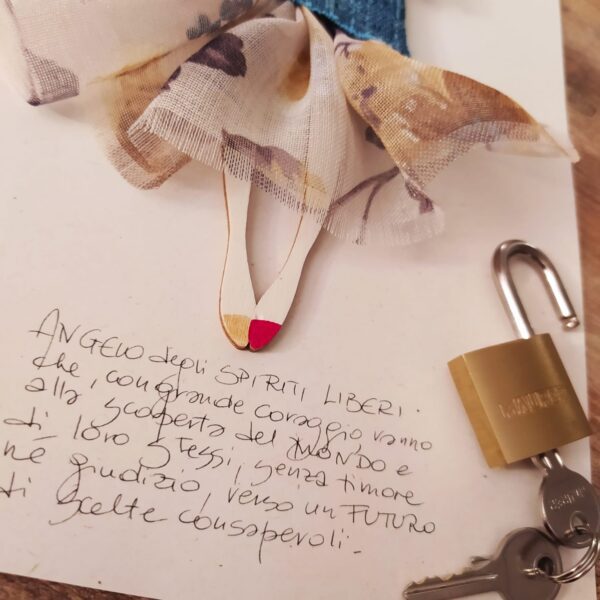 ANGELO degli SPIRITI LIBERI.
che, con grande coraggio, vanno
alla scoperta del MONDO e
di loro stessi, senza timore
né giudizio, verso un FUTURO
di scelte consapevoli.